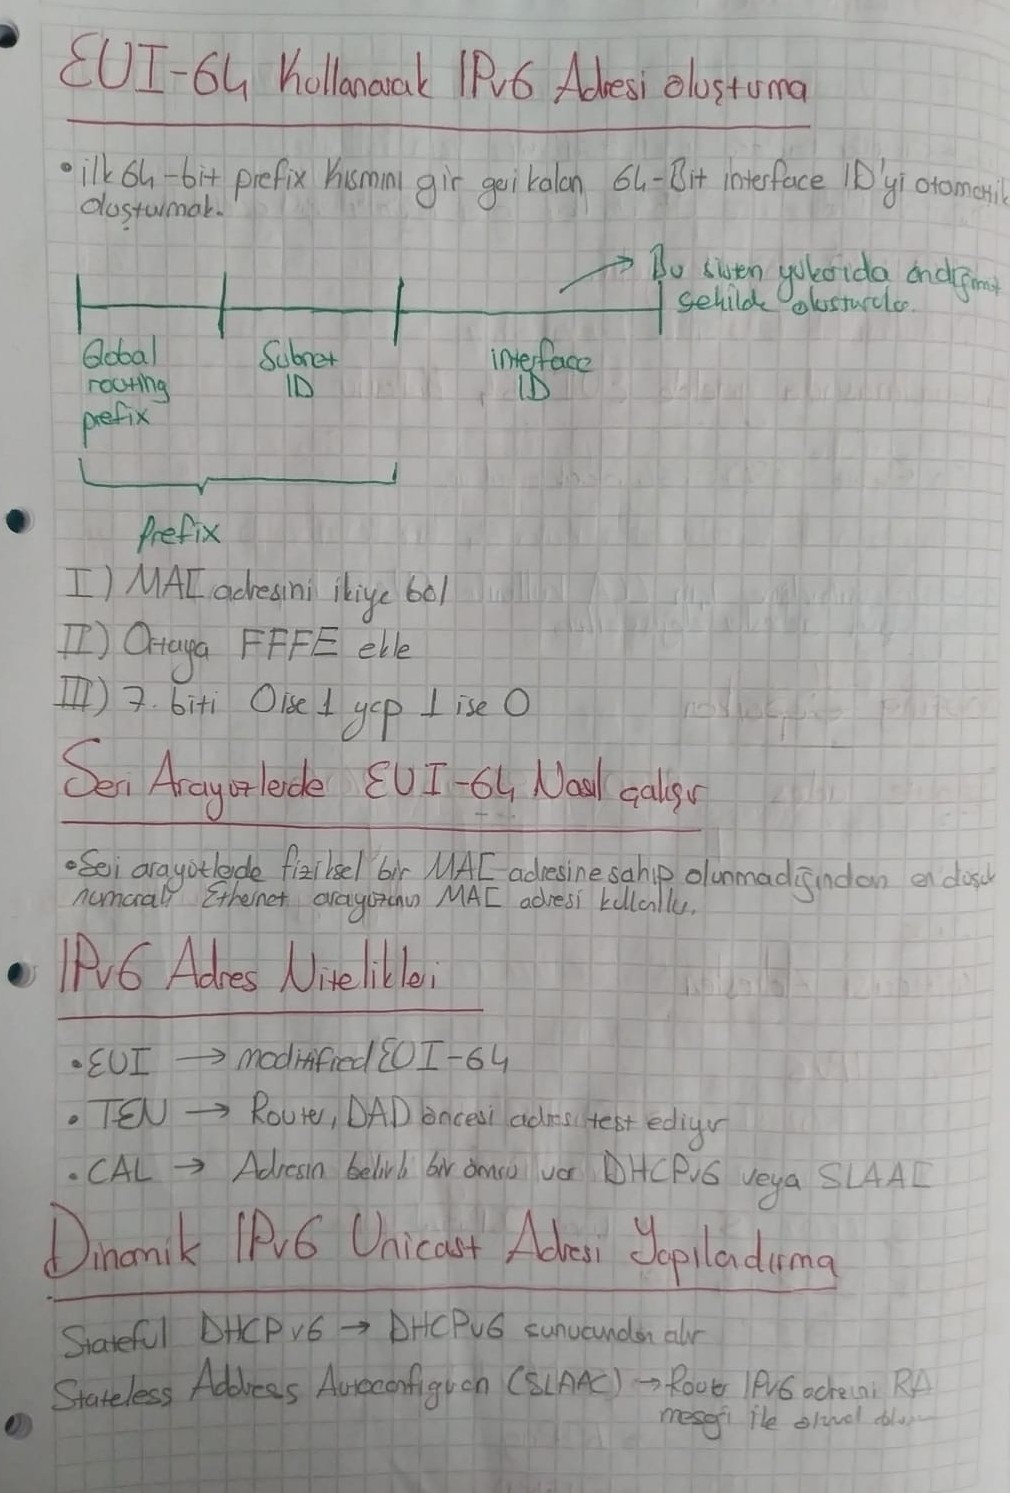 EUI-64 Kullanarak IPv6 Adresi oluşturma
• ilk 64-bit prefix kısmını gir geri kalan 64-Bit interface ID'yi otomatik
oluşturmak.
Bu sistem yukarıda
şekilde oluşturulur.
Global routing prefix
Subnet ID
interface ID
Prefix
I) MAC adresini ikiye böl
II) Ortaya FFFE ekle
III) 7. biti 0 ise 1 yap 1 ise 0
Seri Arayüzlerde EUI-64 Nasıl çalışır
• Seri arayüzlerde fiziksel bir MAC adresine sahip olunmadığından en düşük
numaralı Ethernet arayüzünün MAC adresi kullanılır.
IPv6 Adres Nitelikleri
• EUI → modified EUI-64
• TEN → Router, DAD öncesi adresi test ediyor
• CAL → Adresin belirli bir ömrü var DHCPv6 veya SLAAC
Dinamik IPv6 Unicast Adresi Yapılandırma
Stateful DHCPv6 → DHCPv6 sunucundan alır
Stateless Address Autoconfiguration (SLAAC) → Router IPv6 adresini RA
mesajı ile